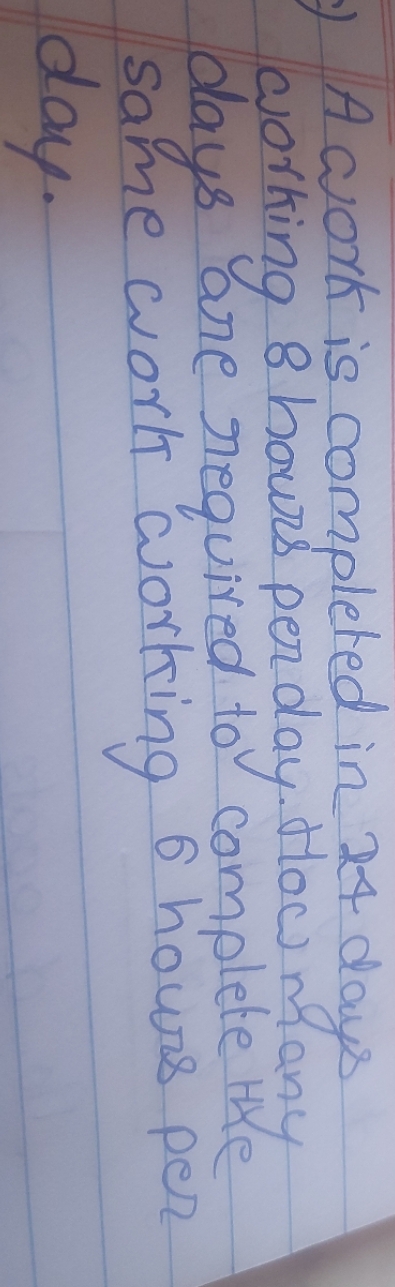 A work is completed in 24 days
working 8 hours per day. How many
days are required to complete the
same work working 6 hours per
day.